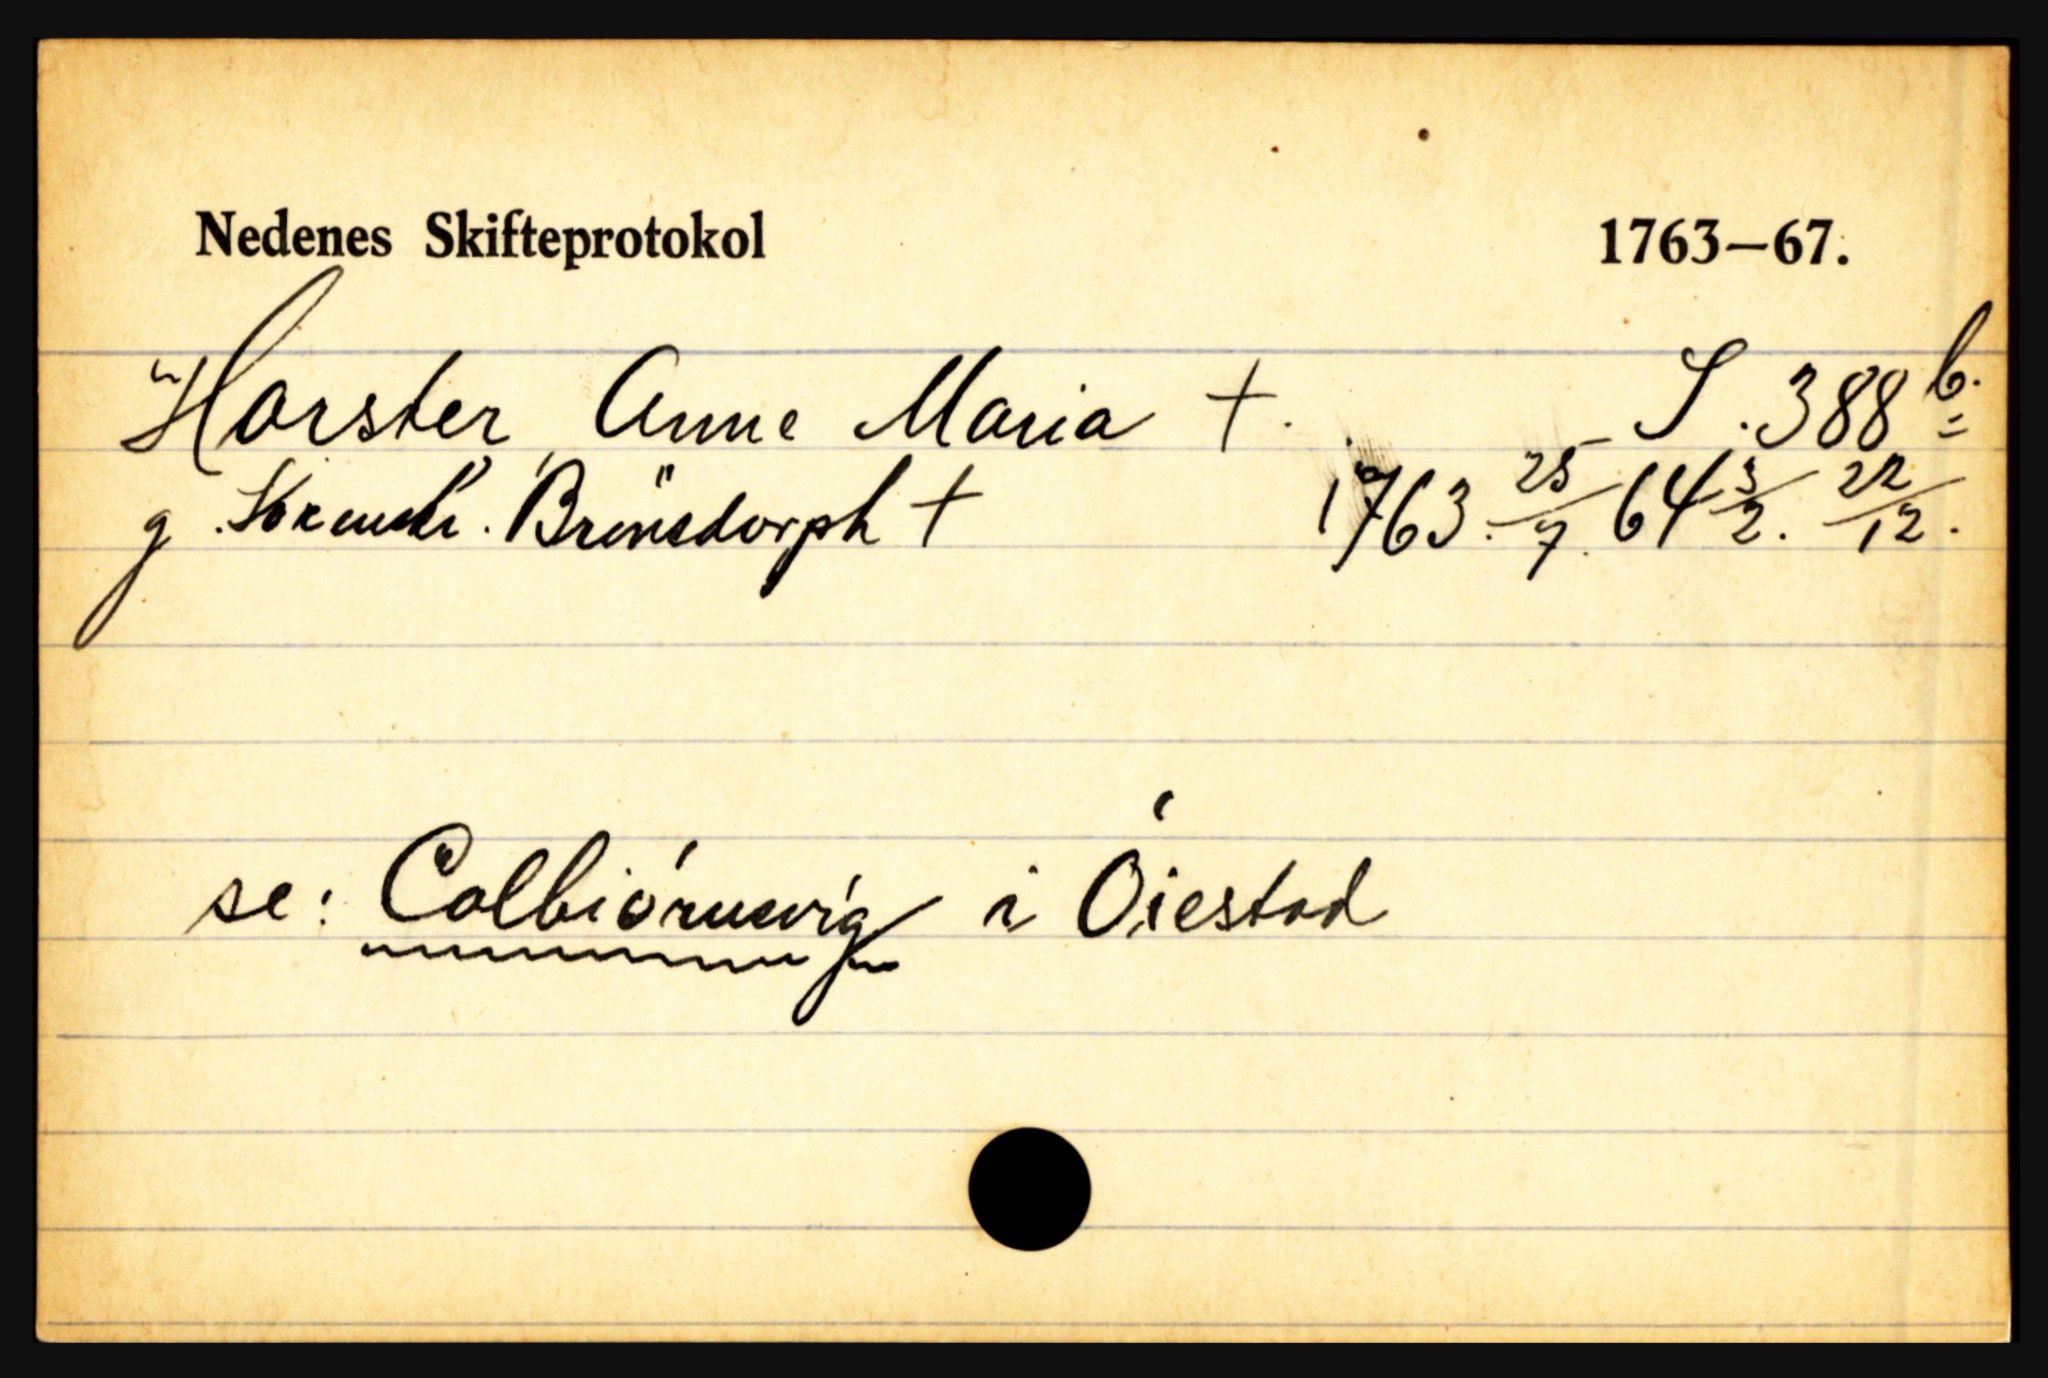 Nedenes Skifteprotokol 1763—67.
Horster, Anne Maria †. S. 388 b.
g. Brönsdorph † 1763. 25/7. 64 3/2. 22/12.
se: Colbiórnsvig i Óiestad